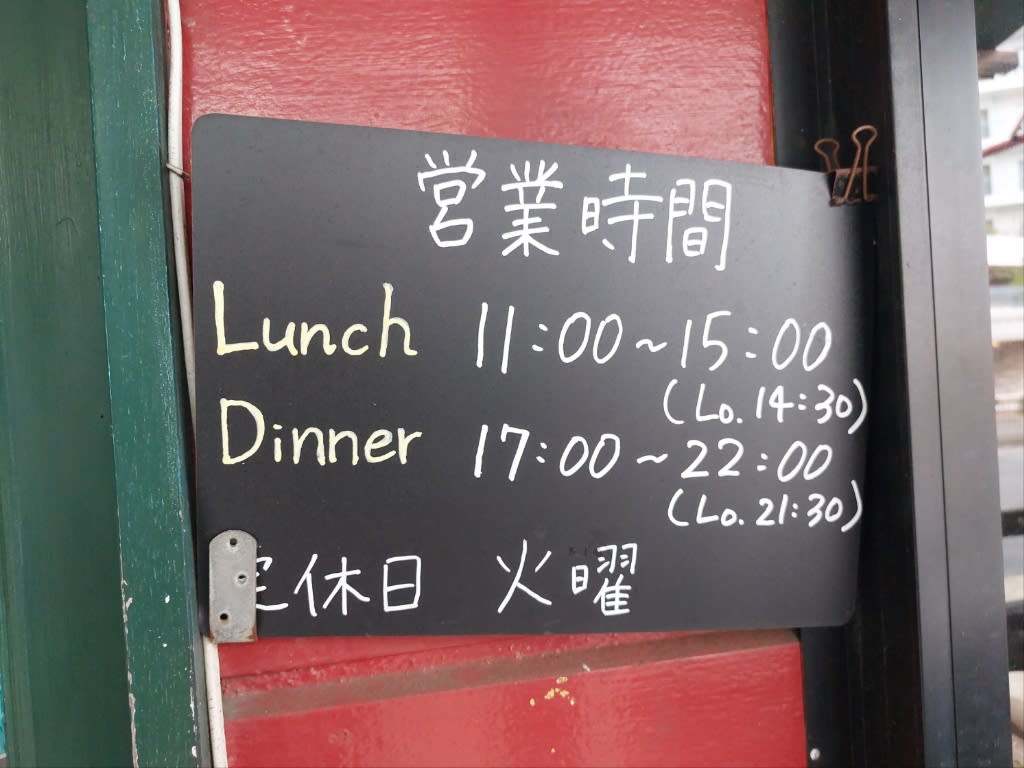 営業時間
Lunch 11:00~15:00
(Lo. 14:30)
Dinner 17:00~22:00
(Lo. 21:30)
定休日 火曜